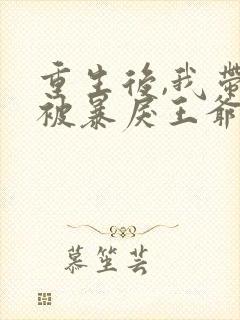 重生後,我帶
被暴戾王爺
慕笙芸